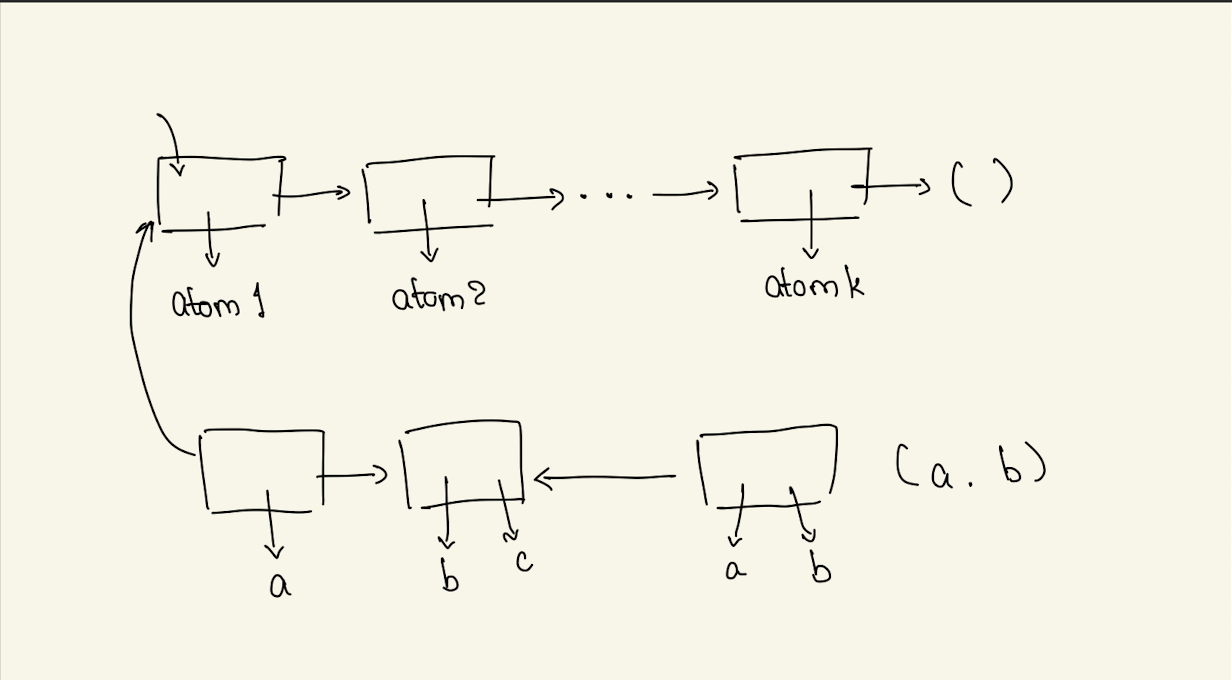 ... ( )
atom 1 atom 2 atom k
(a . b)
a b c a b